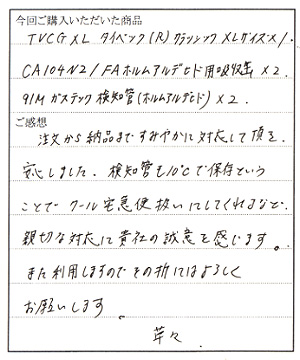 今回ご購入いただいた商品
TVCG XL タイベック(R) クラシック XLサイズ×1.
CA104N2/FAホルムアルデヒド用吸収缶×2.
91M ガステック 検知管(ホルムアルデヒド)×2.
ご感想
注文から納品まですみやかに対応して頂き.
安心しました. 検知管も10℃で保存という
ことでクール宅急便扱いにしてくれるなど.
親切な対応に貴社の誠意を感じます。
また利用しますのでその折にはよろしく
お願いします。
草々.